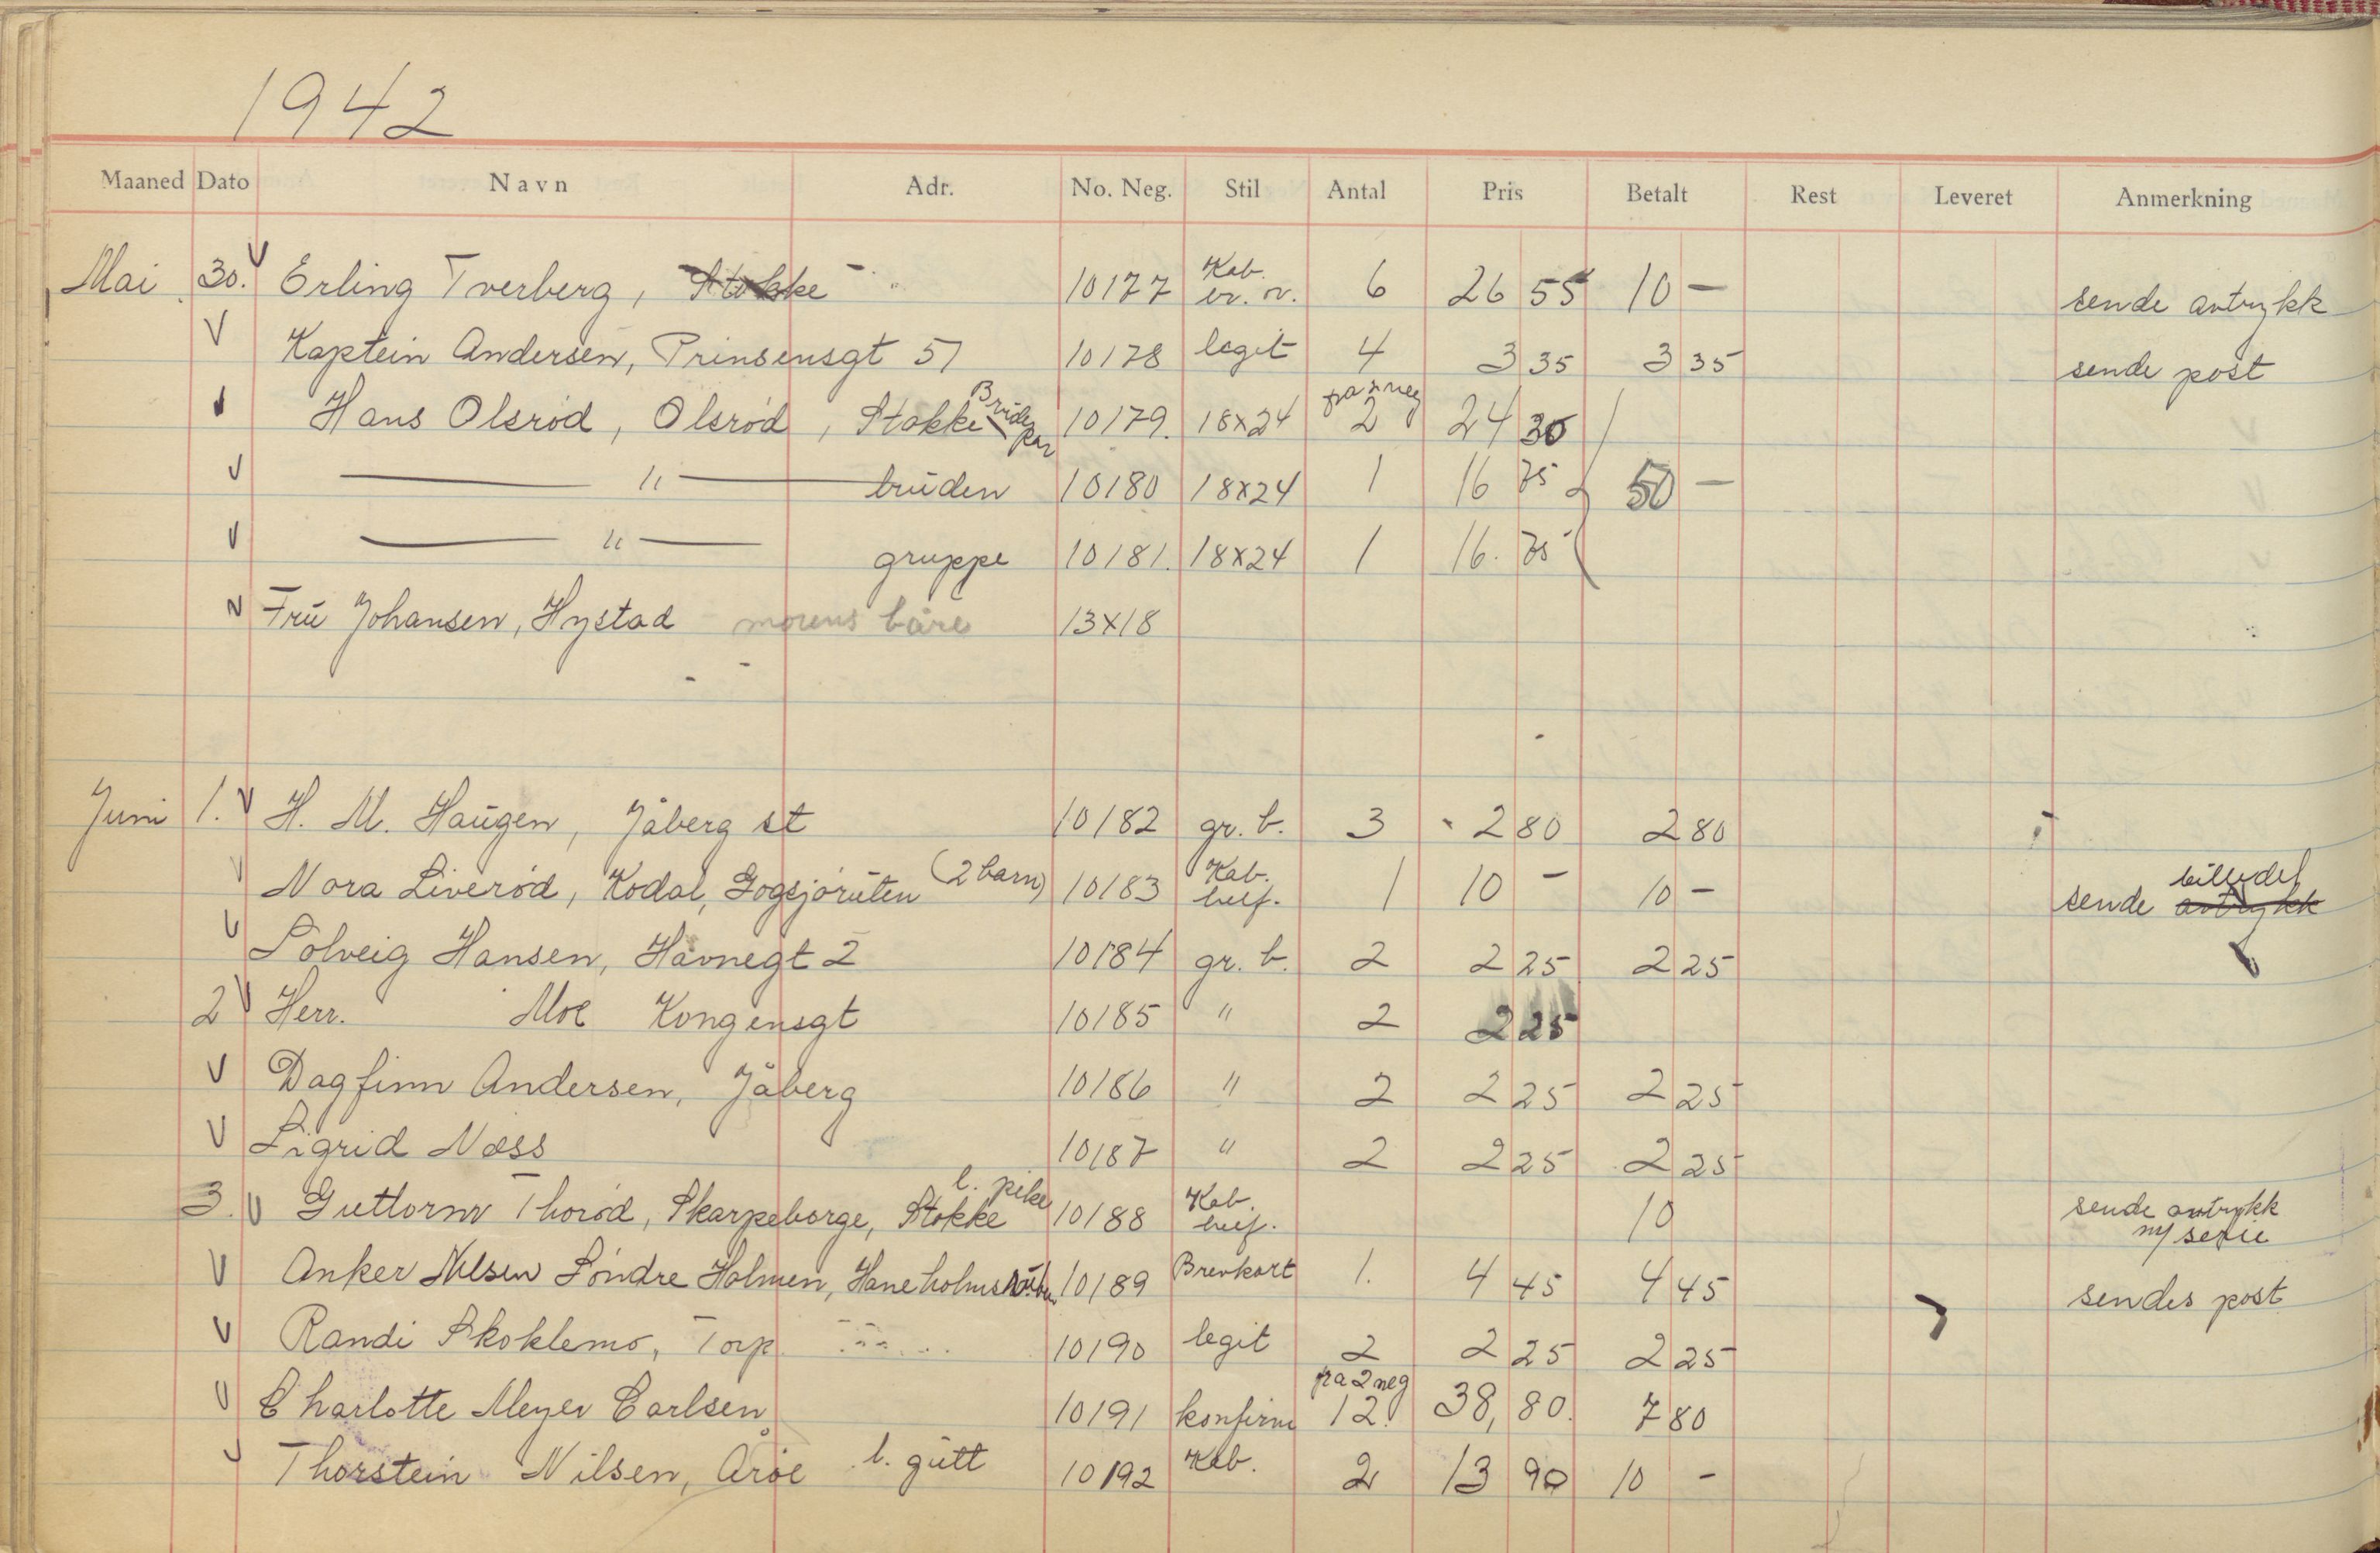 1942
Maaned Dato Navn Adr. No. Neg. Stil Antal Pris Betalt Rest Leveret Anmerkning
Mai 30. V Erling Tverberg, Stokke 10177 Kab. br. v. 6 26 55 10 — sende avtrykk
V Kaptein Andersen, Prinsensgt 51 10178 legit 4 3 35 3 35 sende post
Hans Olsrød, Olsrød, Stokke Brudepar 10179. 18x24 2 24 30
V — " — bruden 10180 18x24 1 16 75 50 —
V — " — gruppe 10181. 18x24 1 16. 75
V Frū Johansen, Hystad morens båre 13x18
Juni 1. V H. M. Haūgen, Jåberg st 10182 gr. b. 3 2 80 2 80
V Nora Liverød, Kodal, Gogsjørūten (2 barn) 10183 Kab. 1 10 — 10 — sende avtrykk billedet
V Solveig Hansen, Havnegt 2 10184 gr. b. 2 2 25 2 25
2 V Herr. Moe Kongensgt 10185 " 2 2 25
V Dagfinn Andersen, Jåberg 10186 " 2 2 25 2 25
V Sigrid Næss 10187 " 2 2 25 2 25
3. V Guttorm Thorød, Skarpeborge, Stokke l. pike 10188 Kab. 10 sende avtrykk
ny serie
V Anker Nilsen Søndre Holmen, 10189 Brevkort 1. 4 45 4 45 sendes post
V Randi Skoklemo, Torp 10190 legit 2 2 25 2 25
V Charlotte Meyer Carlsen 10191 konfirm fra 2 neg 12. 38,80. 7 80
V Thorstein Nilsen, Årøe l. gūtt 10192 Kab. 2 13 90 10 -